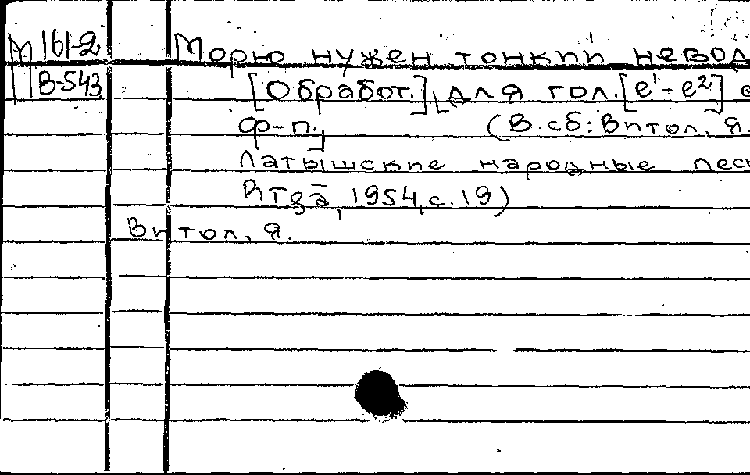 М 161-2
В-543
Морю нужен тонкий невод
[Обработ.] для гол. [e¹-e²] с
ф-п.] (В сб: Витол, Я.
Латышские народные песн
Рига, 1954, с. 19)
Витол, Я.